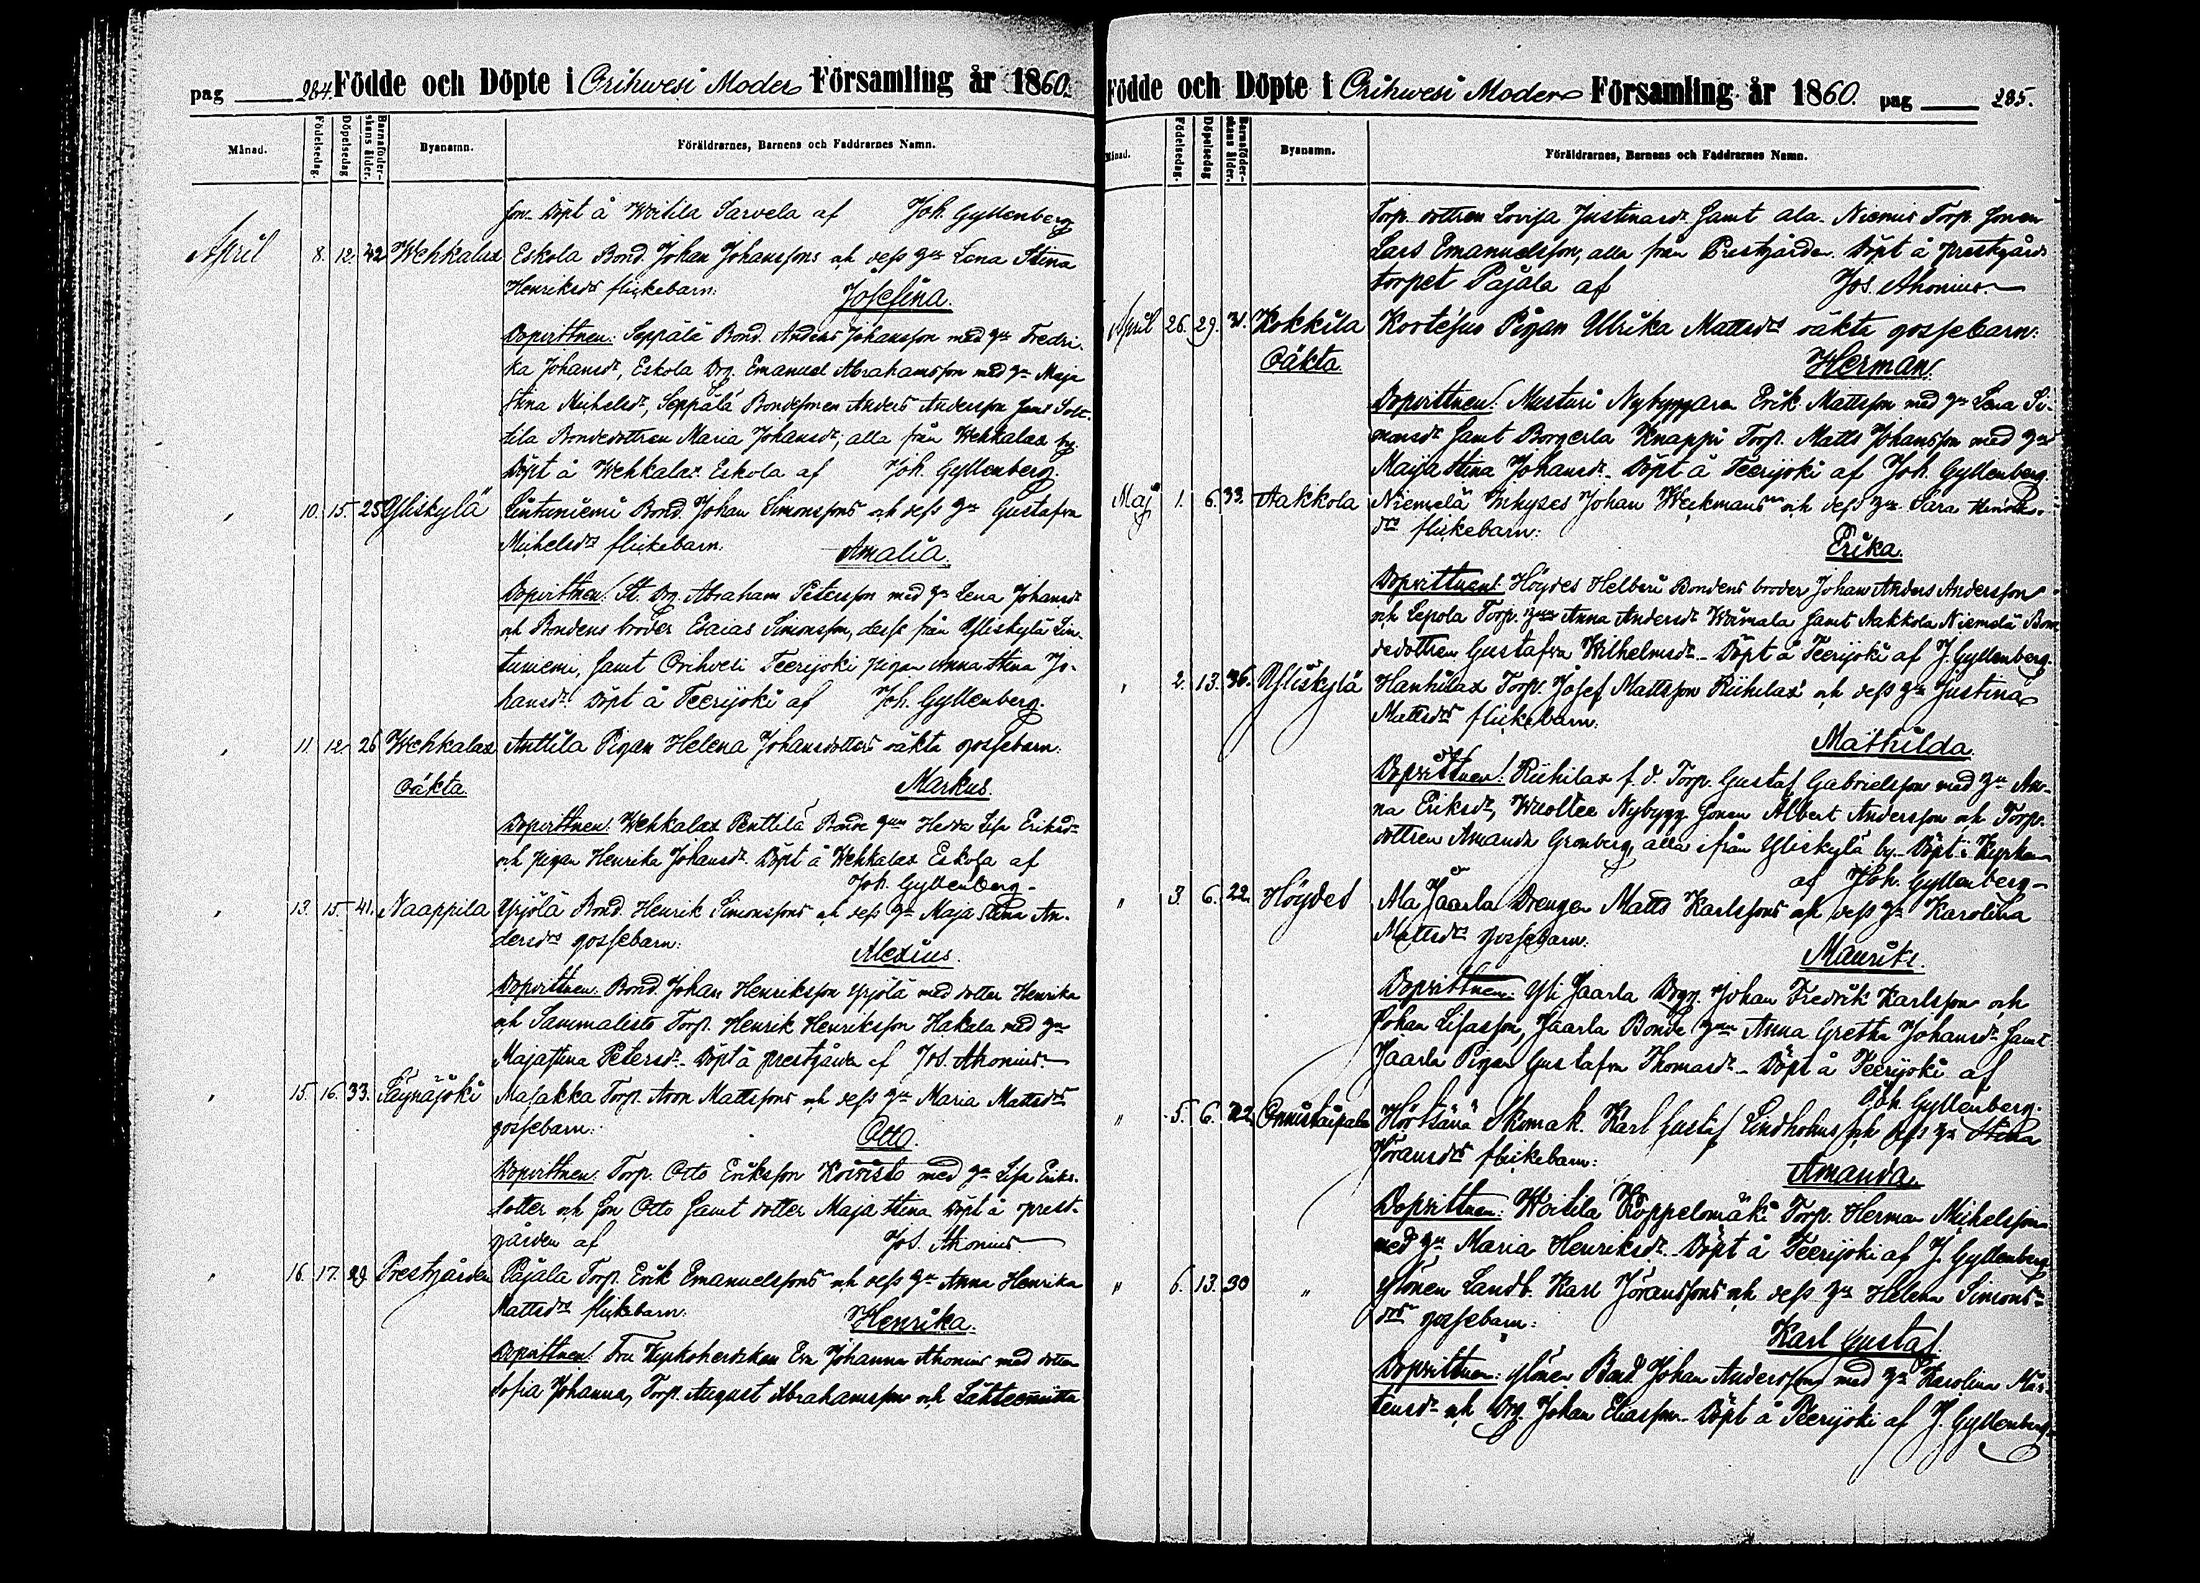 pag 284. Födde och Döpte i Orihwesi Moder Församling år 1860.
Månad. Födelsedag. Döpelsedag Barnaföderskans ålder. Byanamn. Föräldrarnes, Barnens och Faddrarnes Namn.
son. Döpt å Woitila Sarvela af Joh. Gyllenberg
April 8. 12. 42 Wehkalax Eskola Bond. Johan Johanssons och dess Hu Lena Stina
Henriksdr flickebarn: Josefina.
Dopvittnen: Seppälä Bond. Anders Johansson med Hu Fredri-
ka Johansdr, Eskola Drg. Emanuel Abrahamsson med Hu Maja
Stina Michelsdr, Seppälä Bondesonen Anders Andersson samt
tila Bondedottren Maria Johansdr, alla från Wehkalax by.
Döpt å Wehkalax Eskola af Joh. Gyllenberg.
" 10. 15. 25 Yliskylä Lintuniemi Bond. Johan Simonssons och dess Hu Gustafva
Michelsdrs flickebarn: Amalia.
Dopvittnen: St. Drg. Abraham Petersson med Hu Lena Johansdr
och Bondens broder Esaias Simonsson, desse från Yliskylä Lin-
tuniemi, samt Orihvesi Teerijoki pigan Anna Stina Jo-
hansdr. Döpt å Teerijoki af Joh. Gyllenberg.
" 11. 12. 26 Wehkalax Anttila Pigan Helena Johansdotters oäkta gossebarn:
Oäkta. Markus.
Dopvittnen: Wehkalax Penttilä Bonde Hun Hedda Lisa Eriksdr
och pigan Henrika Johansdr. Döpt å Wehkalax Eskola af
Joh. Gyllenberg.
" 13. 15. 41. Naappila Yrjölä Bond. Henrik Simonssons och dess Hu Maja Stina An-
dersdrs gossebarn: Alexius.
Dopvittnen: Bond. Johan Henriksson Yrjölä med dotter Henrika
och Sammalisto Torp. Henrik Henriksson Hakala med Hu
Majastina Petersdr. Döpt å prestgården af Jos. Ahonius.
" 15. 16. 33. Säynäjoki Masakka Torp. Aron Mattssons och dess Hu Maria Mattsdrs
gossebarn: Otto.
Dopvittnen: Torp. Otto Eriksson Koivisto med Hu Lisa Eriks-
dotter och son Otto samt dotter Maja Stina. Döpt å prest-
gården af Jos. Ahonius.
" 16. 17. 29. Prestgården Päjälä Torp. Erik Emanuelssons och dess Hu Anna Henrika
Mattsdrs flickebarn: Henrika.
Dopvittnen: Fru Kyrkoherdskan Eva Johanna Ahonius med dotter
Sofia Johanna, Torp. August Abrahamsson och
Födde och Döpte i Orihwesi Moder Församling år 1860. pag 285.
Månad. Födelsedag. Döpelsedag Barnaföderskans ålder. Byanamn. Föräldrarnes, Barnens och Faddrarnes Namn.
Torp. dottren Lovisa Justinasdr samt Ala-Niemis Torp. sonen
Lars Emanuelsson, alla från Prestgården. Döpt å prestgårds
torpet Päjälä af Jos. Ahonius.
April 26. 29. 31. Kokkila Kortesuo Pigan Ulrika Mattsdrs oäkta gossebarn:
Oäkta. Herman.
Dopvittnen: Musturi Nybyggaren Erik Mattsson med Hu Lena Si-
monsdr samt Borgerla Knappi Torp. Matts Johansson med Hu
Maija Stina Johansdr. Döpt å Teerijoki af Joh. Gyllenberg.
Maj 1. 6. 33. Aakkola Niemelä Inhyses Johan Weckmans och dess Hu Sara Henriks-
drs flickebarn: Erika.
Dopvittnen: Höydes Helberi Bondens broder Johan Anders Andersson
och Lepola Torp. Hun Anna Andersdr Woimala samt Aakkola Niemelä Bon-
dedottren Gustafva Wilhelmsdr. Döpt å Teerijoki af J. Gyllenberg.
" 2. 13. 36. Yliskylä Hanhilax Torp. Josef Mattsson Riihilax' och dess Hu Justina
Mattsdrs flickebarn: Mathilda.
Dopvittnen: Riihilax f. d. Torp. Gustaf Gabrielsson med Hu An-
na Eriksdr, Wuoltee Nybygg. sonen Albert Andersson och Torp.
dottren Amanda Grönberg, alla ifrån Yliskylä by. Döpt i Kyrkan
af Joh. Gyllenberg.
" 3. 6. 22. Höydes Ala Jaarla Drengen Matts Karlssons och dess Hu Karolina
Mattsdrs gossebarn: Maurits.
Dopvittnen: Yli Jaarla Drgg. Johan Fredrik Karlsson och
Johan Lisasson, Jaarla Bonde Hun Anna Gretha Johansdr samt
Jaarla Pigan Gustafva Thomasdr. Döpt å Teerijoki af
Joh. Gyllenberg.
" 5. 6. 22 Onnistaipale Hörtsänä Skomak. Karl Gustaf Lindholms och dess Hu Stina
Göransdrs flickebarn: Amanda.
Dopvittnen: Woitila Koppelomäki Torp. Herman Michelsson
med Hu Maria Henriksdr. Döpt å Teerijoki af J. Gyllenberg
" 6. 13. 30 " Ylönen Landb. Karl Göranssons och dess Hu Helena Simons-
drs gossebarn: Karl Gustaf.
Dopvittnen: Ylönen Bond. Johan Andersson med Hu Karolina Mår-
tensdr och Drg. Johan Eliasson. Döpt å Teerijoki af J. Gyllenberg.